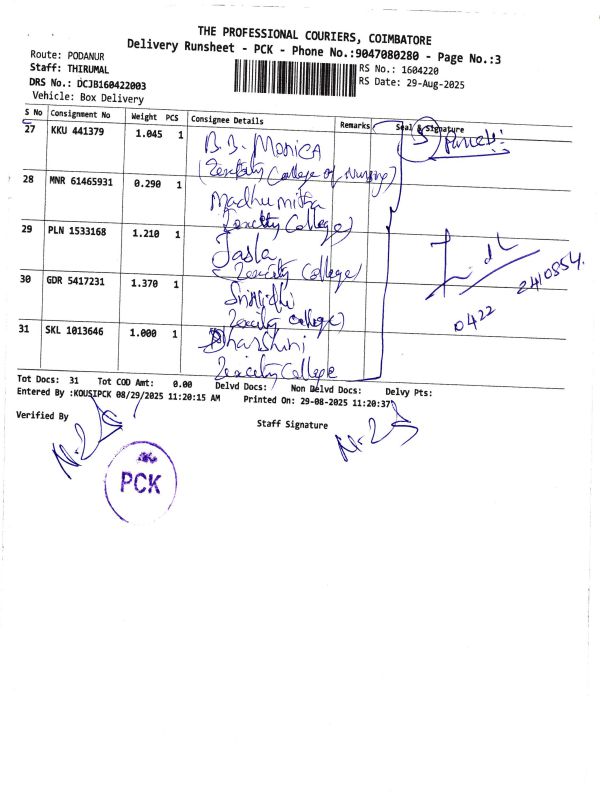 THE PROFESSIONAL COURIERS, COIMBATORE
Delivery Runsheet - PCK - Phone No.:9047080280 - Page No.:3
Route: PODANUR
Staff: THIRUMAL
RS No.: 1604220
DRS No.: DCJB160422003
RS Date: 29-Aug-2025
Vehicle: Box Delivery
S No Consignment No Weight PCS Consignee Details Remarks Seal & Signature
27 KKU 441379 1.045 1 B.B. Monica 5 Parcels
(Texcity College of Nursing)
28 MNR 61465931 0.290 1 Madhumitha
Texcity College)
29 PLN 1533168 1.210 1 Jasla
(Texcity College)
0422 2410554.
30 GDR 5417231 1.370 1 Srinidhi
Texcity College)
31 SKL 1013646 1.000 1 Dharshini
Texcity College
Tot Docs: 31 Tot COD Amt: 0.00 Delvd Docs: Non Delvd Docs: Delvy Pts:
Entered By :KOUSIPCK 08/29/2025 11:20:15 AM Printed On: 29-08-2025 11:20:37
Verified By
Staff Signature
PCK